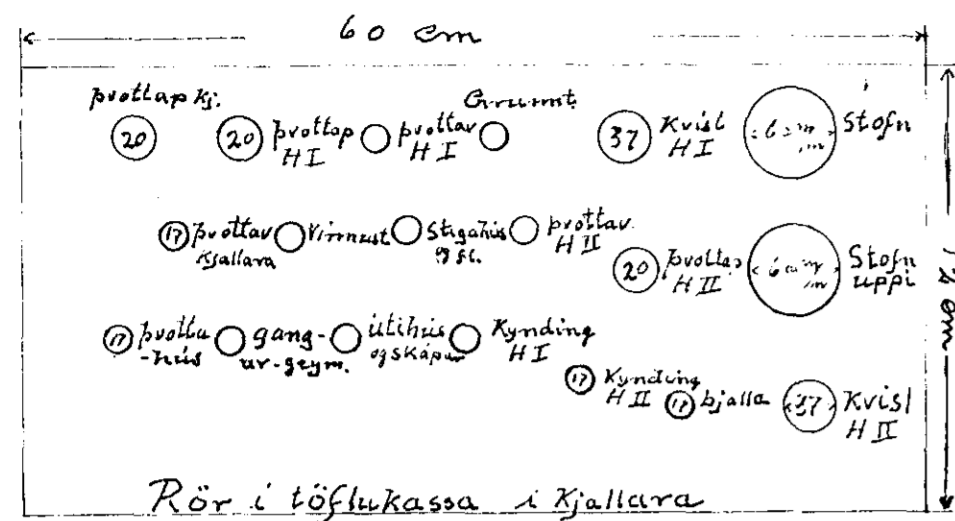 60 cm
þvottap kj.
20
20
þvottap
H I
þvottav
H I
37
Kvisl
H I
6 cm
Stofn
17
þvottav
Kjallara
Vinnust
Stigahús
þvottav.
H II
20
þvottap
H II
6 cm
Stofn
uppi
12 cm
17
þvotta
-hús
gang-
ur-geym.
útihús
og skápur
Kynding
H I
17
Kynding
H II
17
bjalla
37
Kvisl
H II
Rör i töflukassa i Kjallara